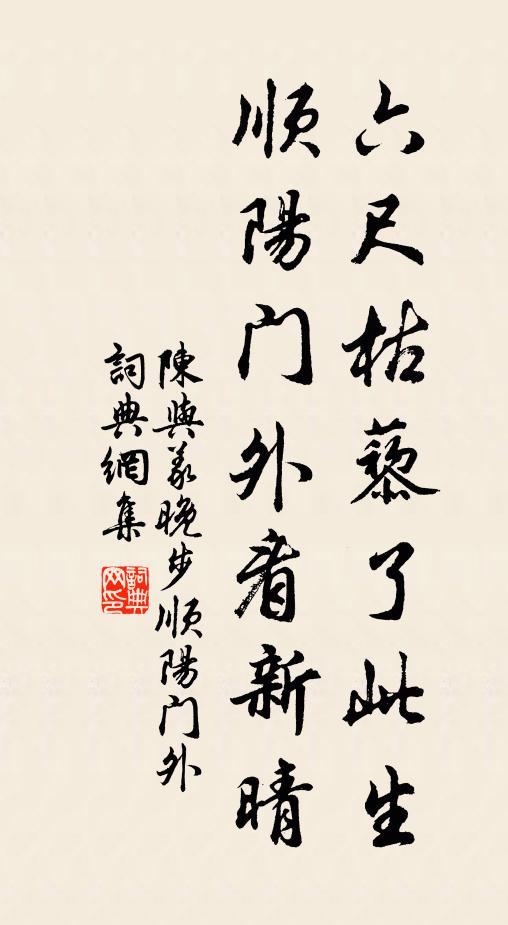 六尺枯藜了此生
順陽门外看新晴
陳與義晚步順陽门外
詞典網集
詞典网印